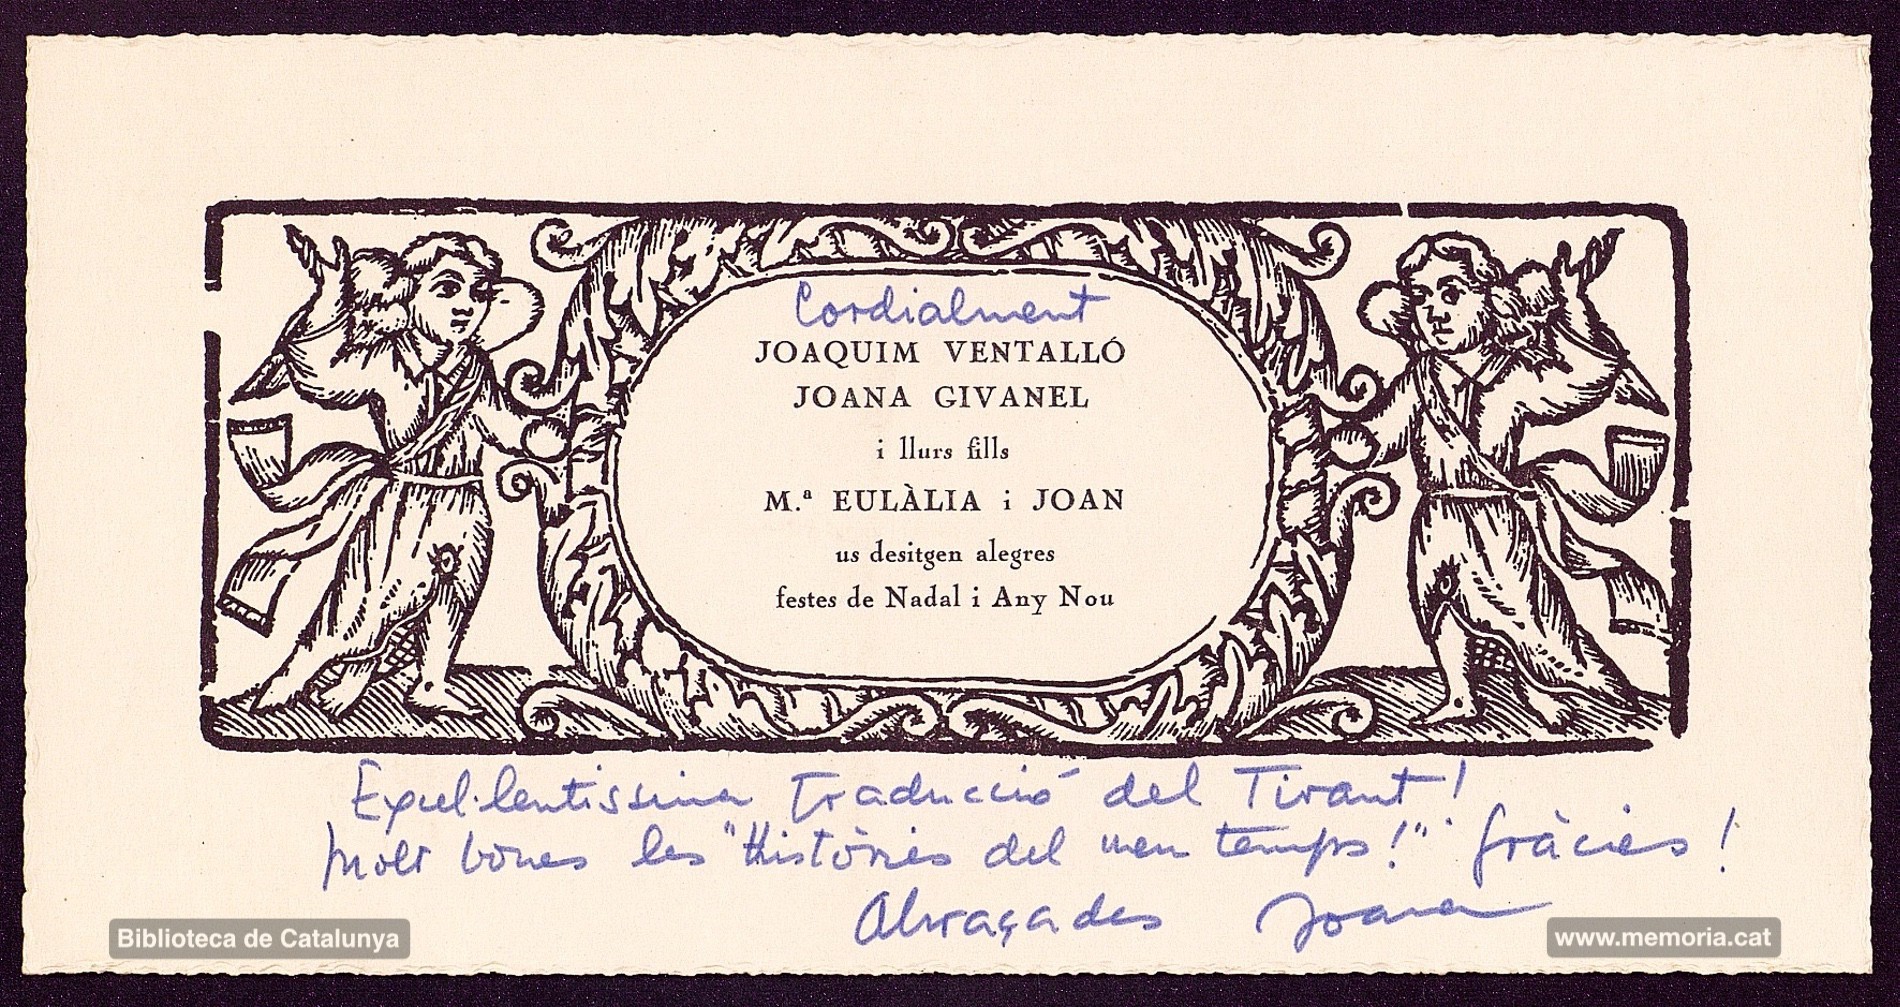 Cordialment
JOAQUIM VENTALLÓ
JOANA GIVANEL
i llurs fills
M.ª EULÀLIA i JOAN
us desitgen alegres
festes de Nadal i Any Nou
Excel·lentissima traducció del Tirant!
Molt bones les "Històries del meu temps!" Gràcies!
Abraçades Joana
Biblioteca de Catalunya
www.memoria.cat